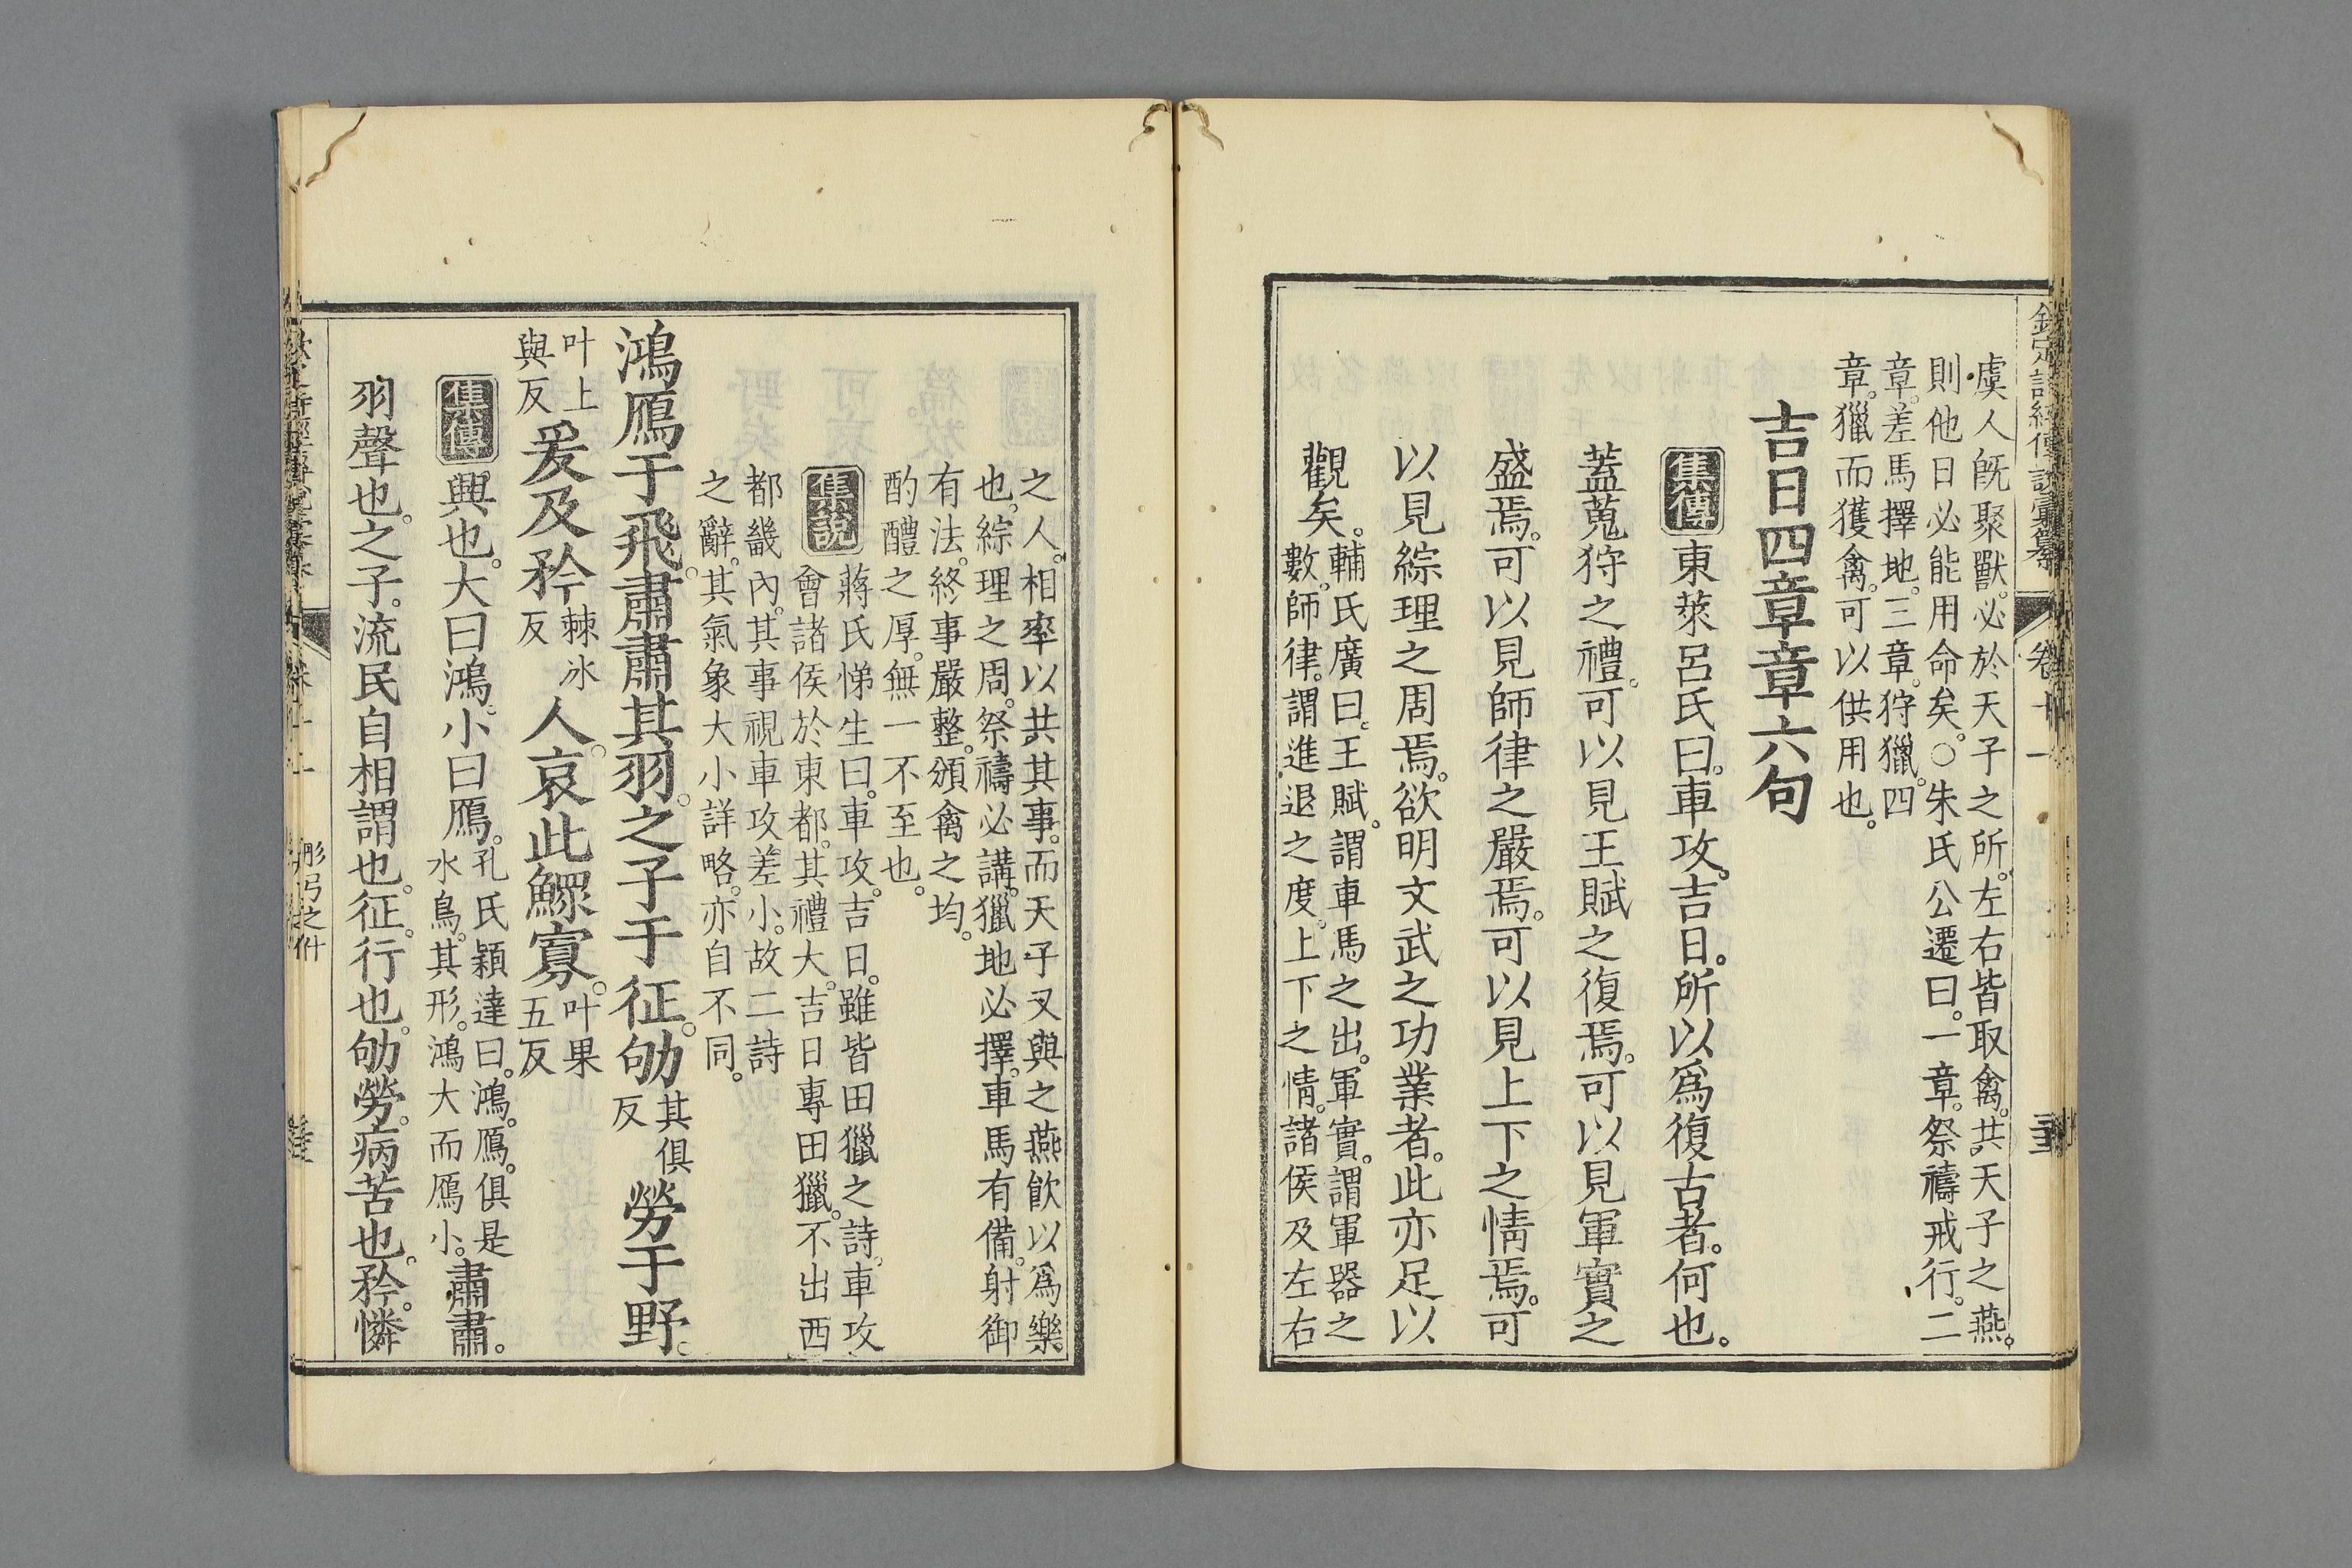 欽定詩經傳說彙纂 卷十一
虞人旣聚獸。必於天子之所。左右皆取禽。共天子之燕。
則他日必能用命矣。○朱氏公遷曰。一章。祭禱戒行。二
章。差馬擇地。三章。狩獵。四
章。獵而獲禽。可以供用也。
吉日四章章六句
集傳 東萊呂氏曰。車攻。吉日。所以爲復古者。何也。
蓋蒐狩之禮。可以見王賦之復焉。可以見軍實之
盛焉。可以見師律之嚴焉。可以見上下之情焉。可
以見綜理之周焉。欲明文武之功業者。此亦足以
觀矣。
輔氏廣曰。王賦。謂車馬之出。軍實。謂軍器之
數。師律。謂進退之度。上下之情。諸侯及左右
之人。相率以共其事。而天子又與之燕飮以爲樂
也。綜理之周。祭禱必講。獵地必擇。車馬有備。射御
有法。終事嚴整。頒禽之均。
酌醴之厚。無一不至也。
集說
蔣氏悌生曰。車攻。吉日。雖皆田獵之詩。車攻
會諸侯於東都。其禮大。吉日專田獵。不出西
都畿內。其事視車攻差小。故二詩
之辭。其氣象大小詳略。亦自不同。
鴻鴈于飛。肅肅其羽。之子于征。劬其俱反勞于野。
叶上與反爰及矜棘冰反人。哀此鰥寡。叶果五反
集傳 興也。大曰鴻。小曰鴈。孔氏穎達曰。鴻。鴈。俱是水鳥。其形。鴻大而鴈小。肅肅。
羽聲也。之子。流民自相謂也。征。行也。劬勞。病苦也。矜。憐